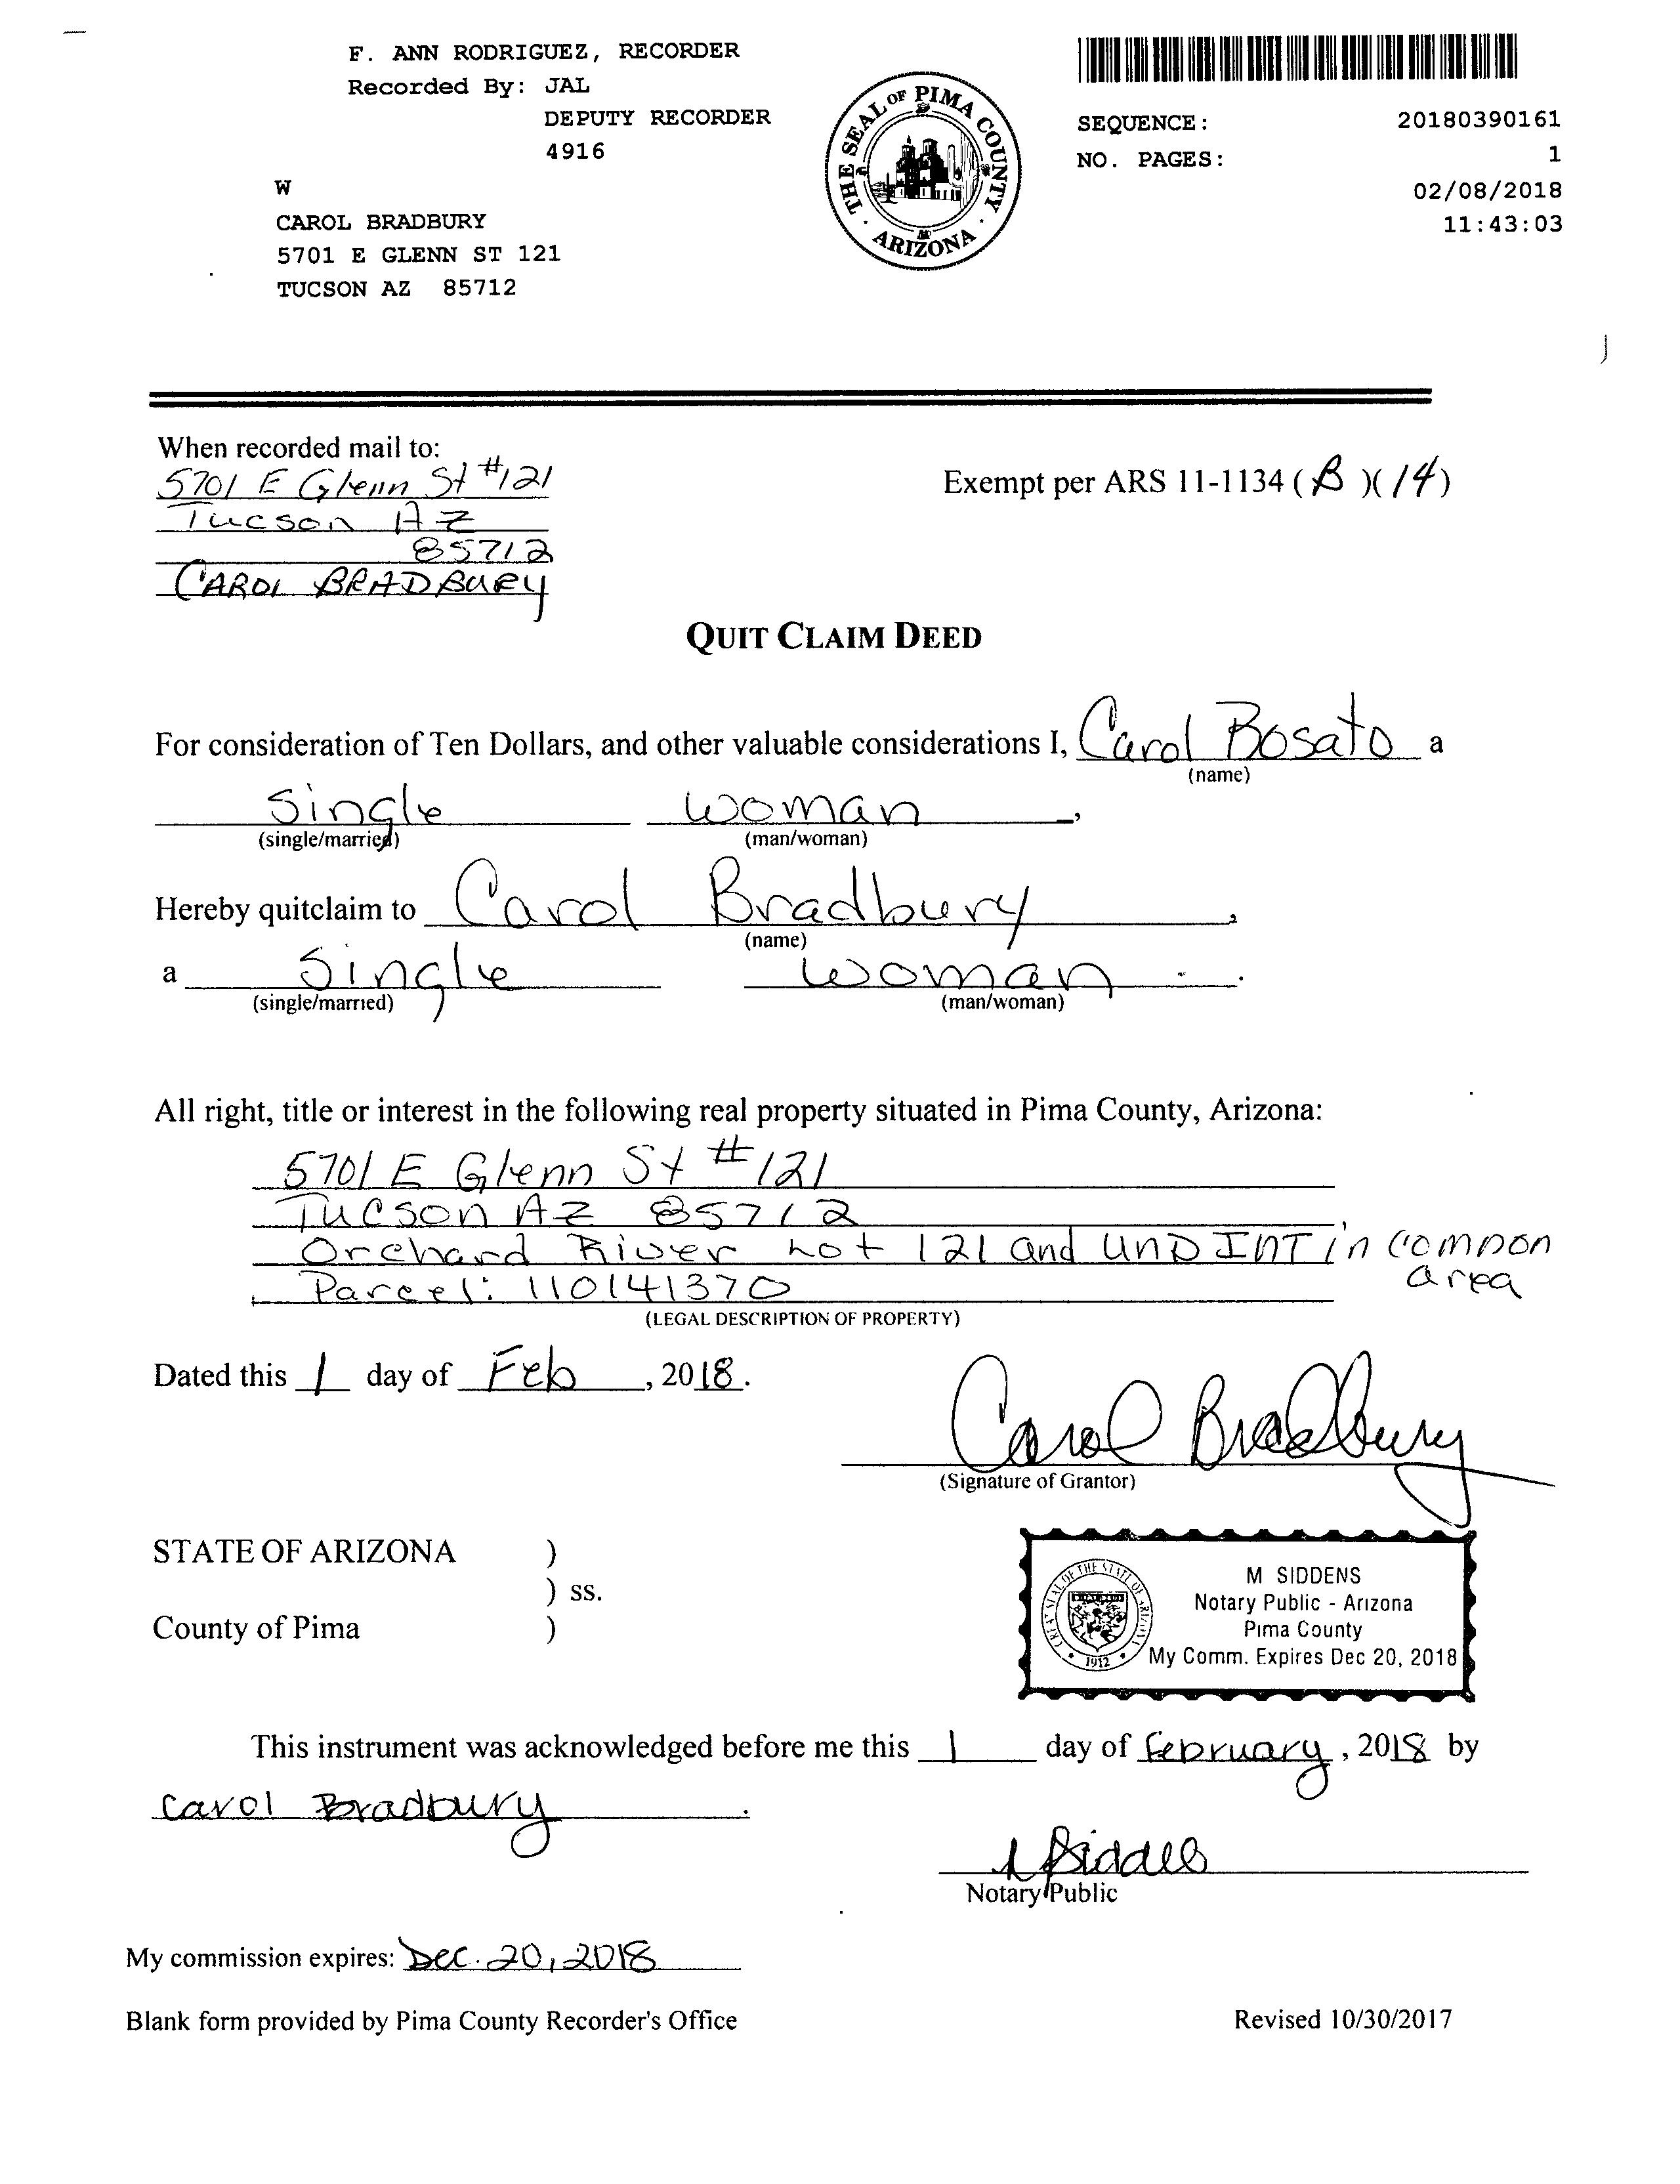 F. ANN RODRIGUEZ, RECORDER
Recorded By: JAL
DEPUTY RECORDER
4916
W
CAROL BRADBURY
5701 E GLENN ST 121
TUCSON AZ 85712
THE SEAL OF PIMA COUNTY
ARIZONA
SEQUENCE: 20180390161
NO. PAGES: 1
02/08/2018
11:43:03
When recorded mail to:
5701 E Glenn St #121
Tucson AZ
85712
CAROL BRADBURY
Exempt per ARS 11-1134 ( B )( 14 )
QUIT CLAIM DEED
For consideration of Ten Dollars, and other valuable considerations I, Carol Bosato a
(name)
Single woman ,
(single/married) (man/woman)
Hereby quitclaim to Carol Bradbury ,
(name)
a Single woman .
(single/married) (man/woman)
All right, title or interest in the following real property situated in Pima County, Arizona:
5701 E Glenn St #121
Tucson AZ 85712
Orchard River Lot 121 and UND INT in common
area
Parcel: 110141370
(LEGAL DESCRIPTION OF PROPERTY)
Dated this 1 day of Feb , 2018.
Carol Bradbury
(Signature of Grantor)
STATE OF ARIZONA )
) ss.
County of Pima )
GREAT SEAL OF THE STATE OF ARIZONA
1912
M SIDDENS
Notary Public - Arizona
Pima County
My Comm. Expires Dec 20, 2018
This instrument was acknowledged before me this 1 day of February, 2018 by
Carol Bradbury .
Notary Public
My commission expires: Dec. 20, 2018
Blank form provided by Pima County Recorder's Office
Revised 10/30/2017